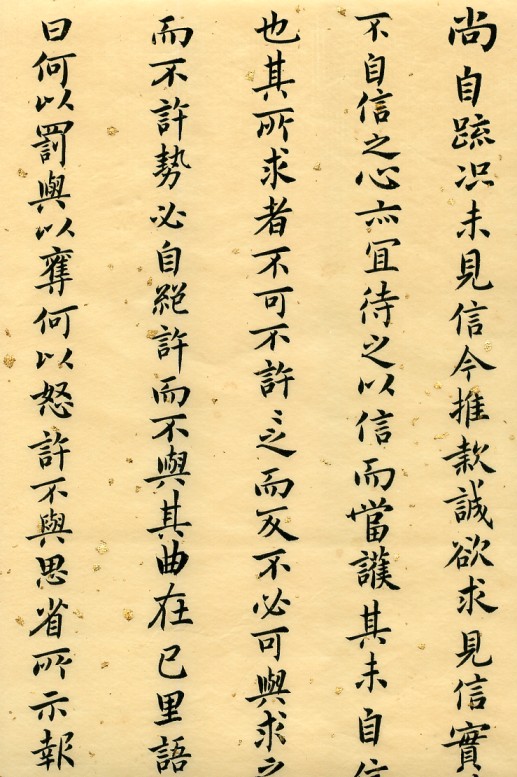 尚自疏况未見信今推款誠欲求見信實
不自信之心亦宜待之以信而當護其未自信
也其所求者不可不許々之而反不必可與求之
而不許勢必自絕許而不與其曲在己里語
曰何以罰與以奪何以怒許不與思省所示報